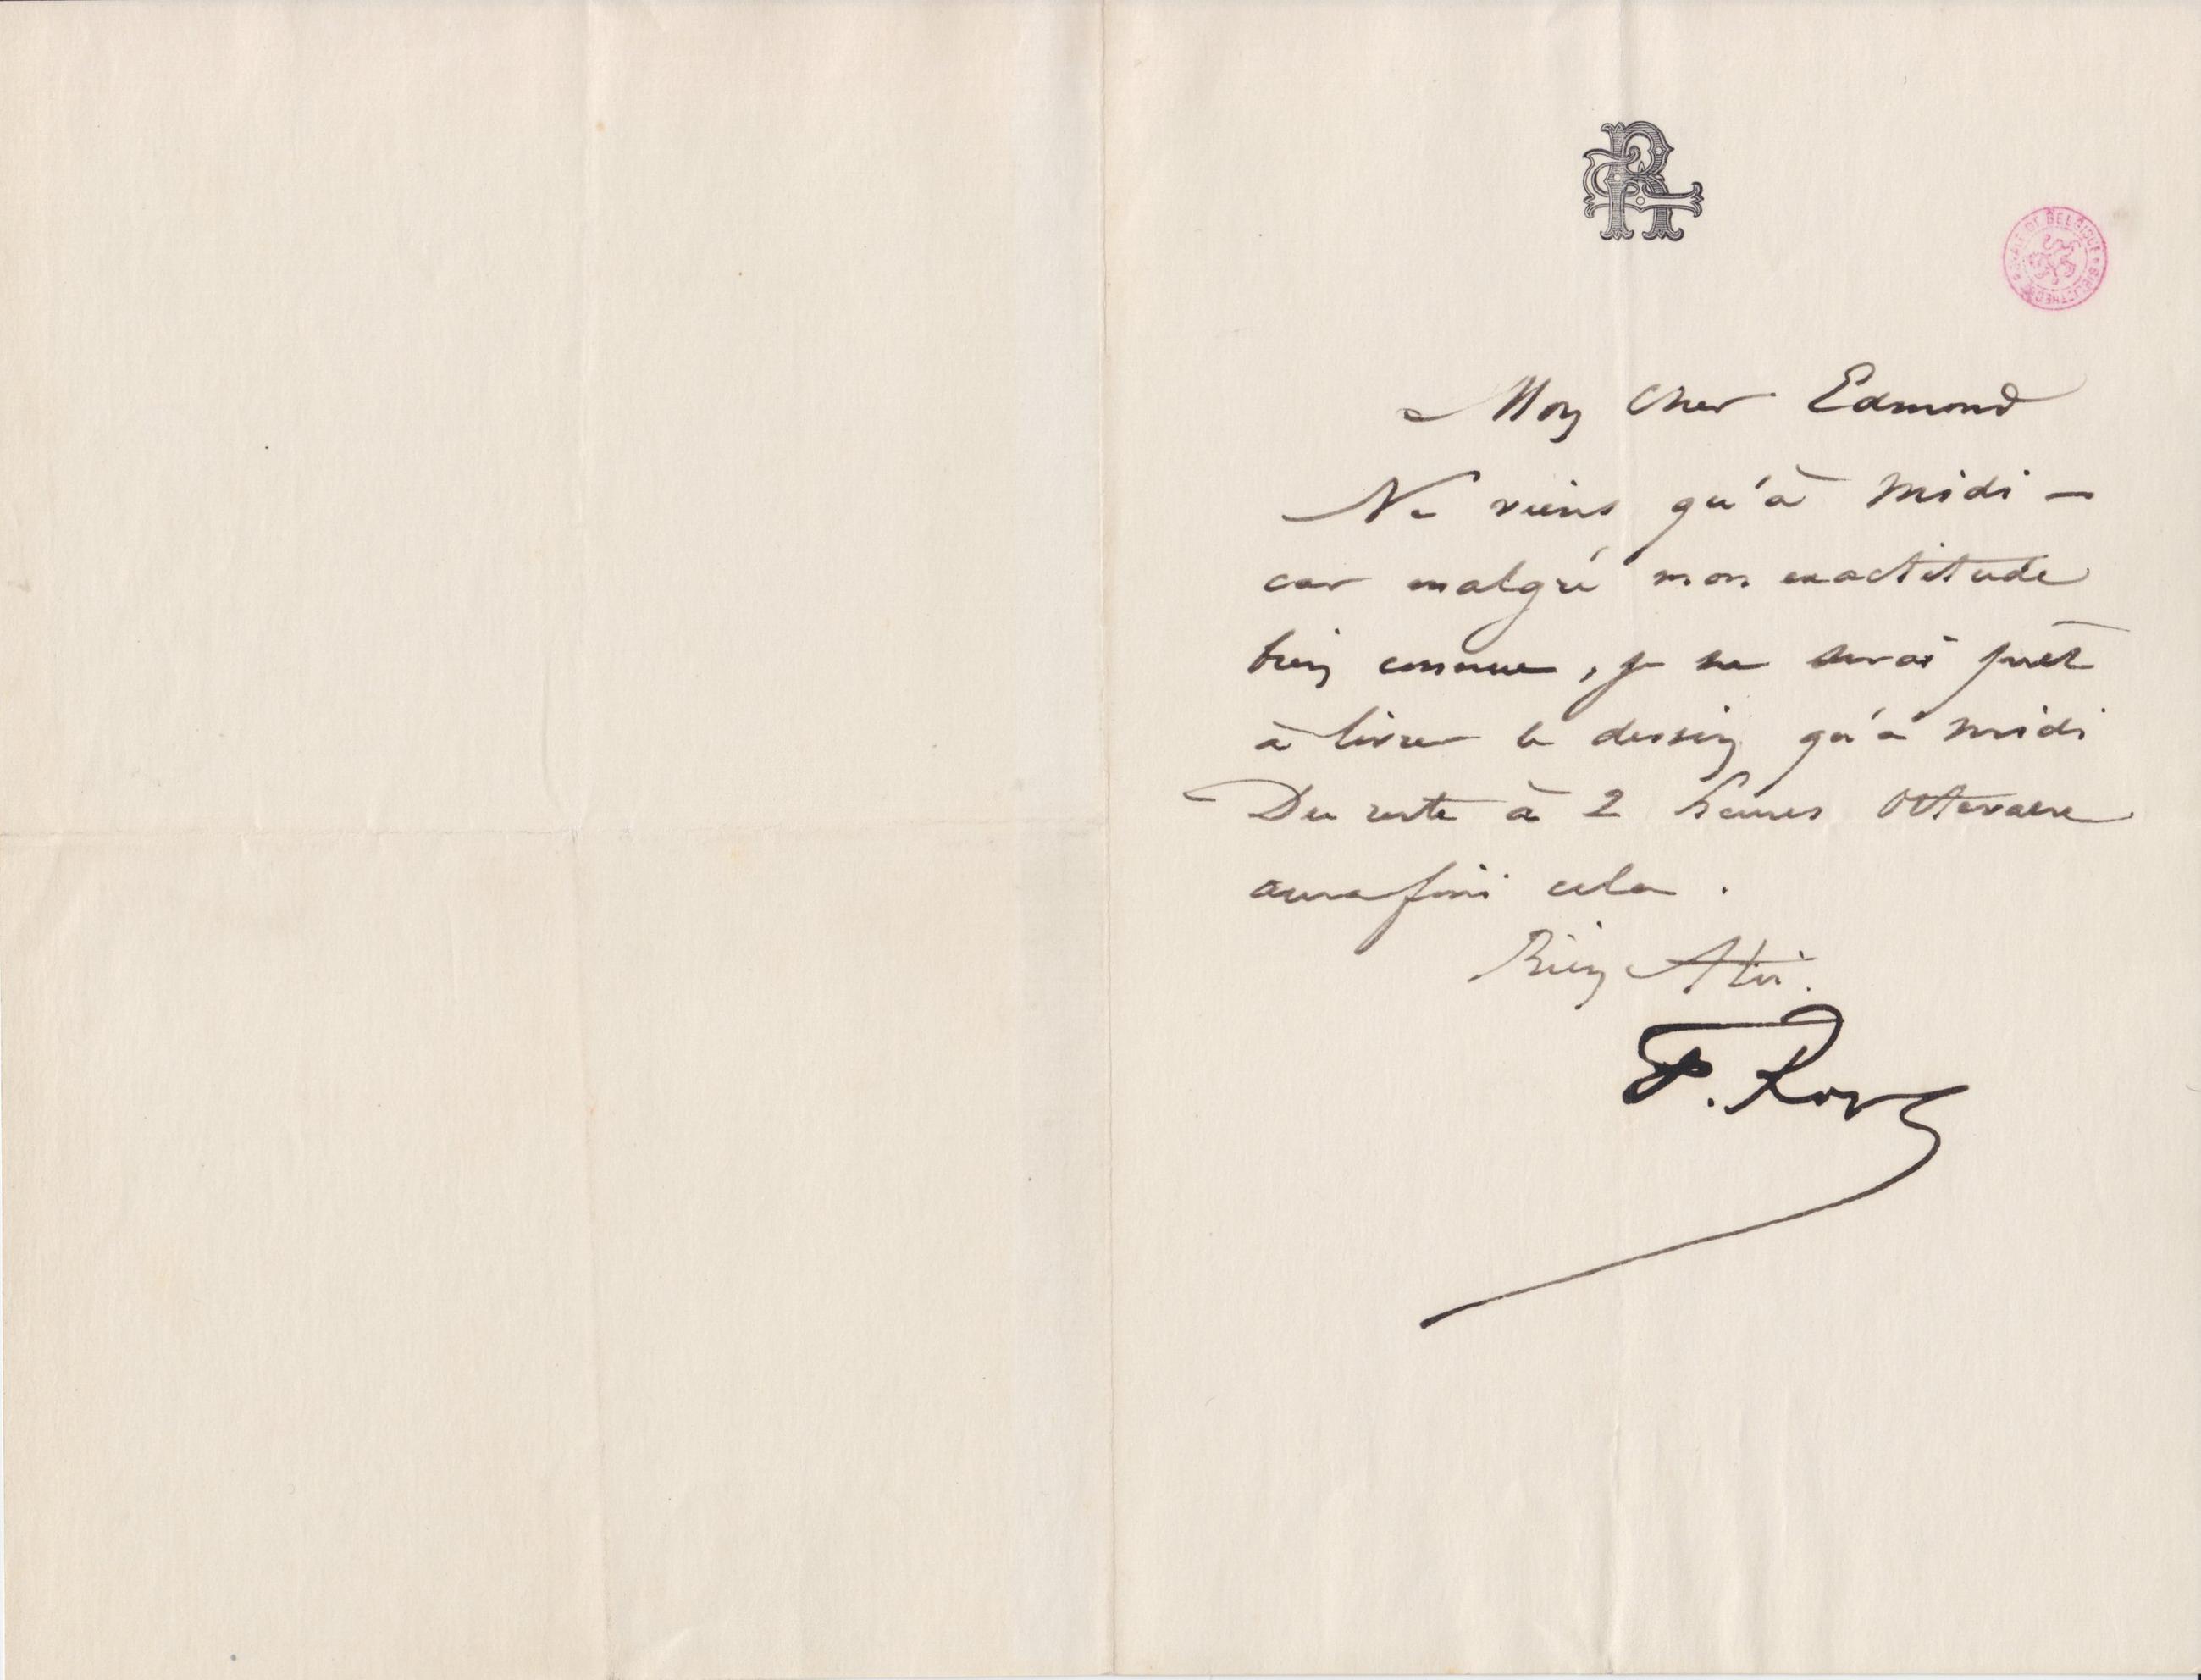 Mon Cher Edmond
Ne viens qu'à Midi —
car malgré mon exactitude
bien connue, je ne serai prêt
à livrer le dessin qu'à midi
Du reste à 2 heures Ottevaere
aura fini cela.
Bien A toi.
F. Rops
BIBLIOTHEQUE ROYALE DE BELGIQUE